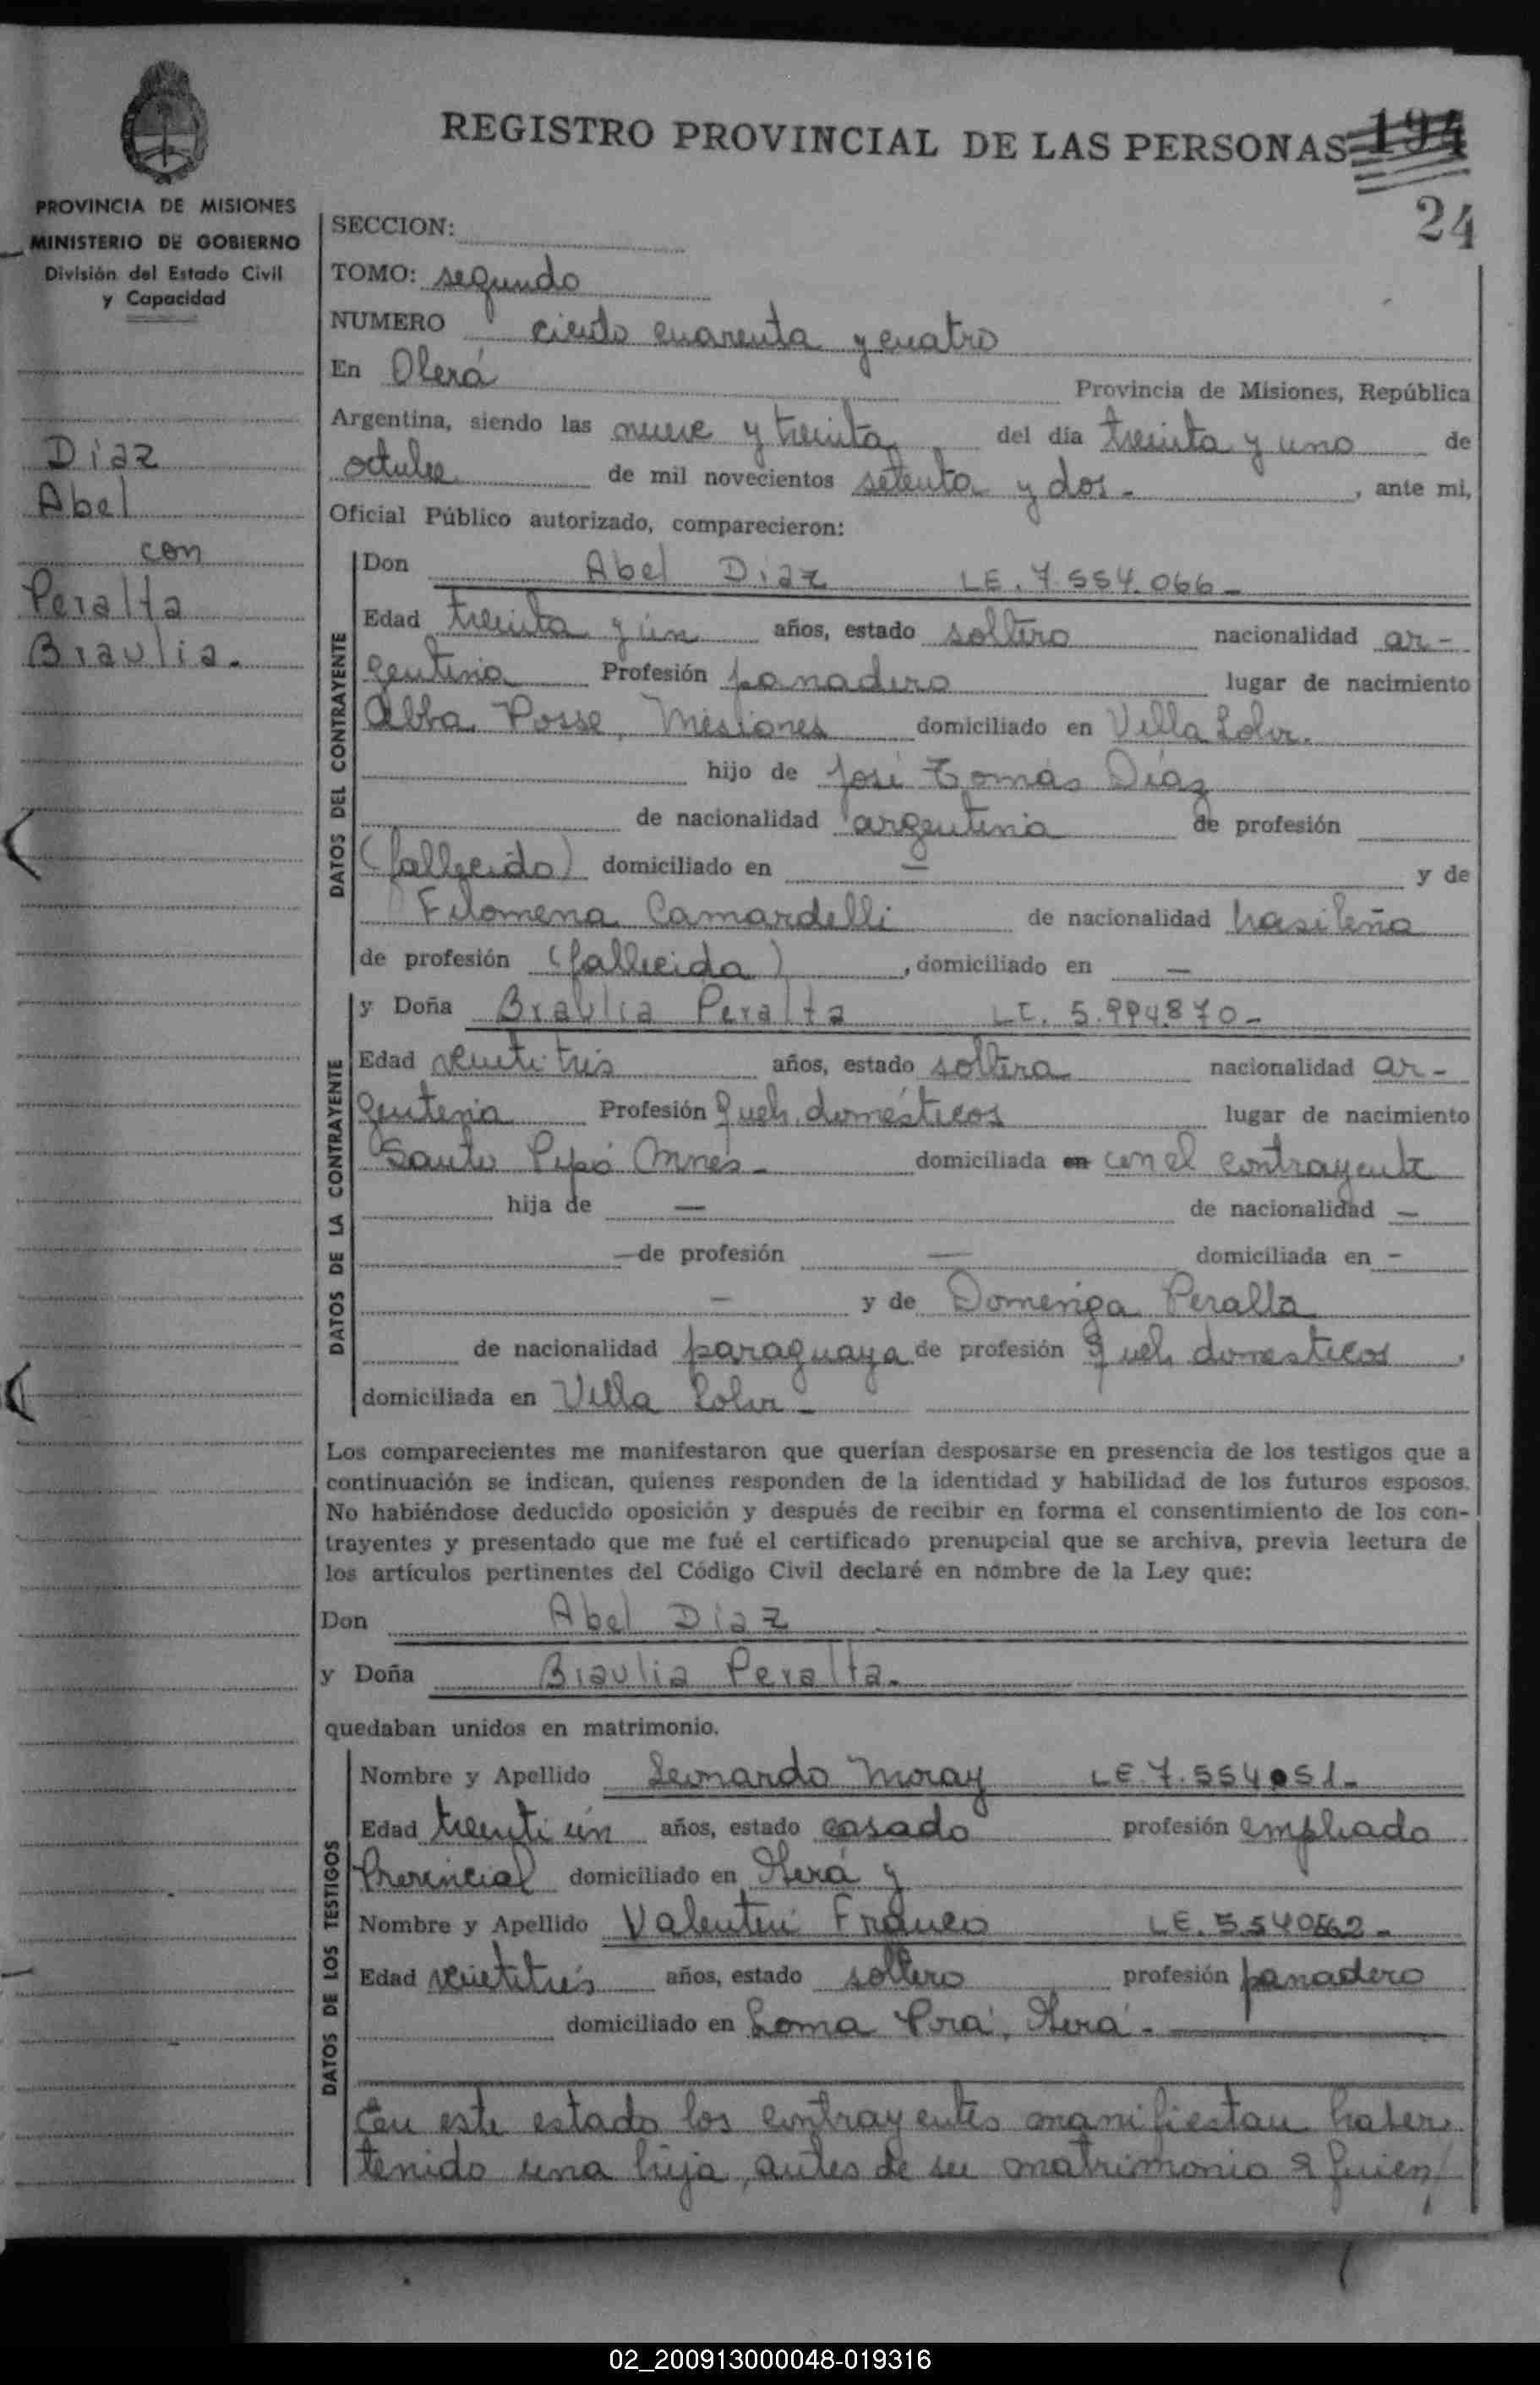 REGISTRO PROVINCIAL DE LAS PERSONAS 194
24
PROVINCIA DE MISIONES
MINISTERIO DE GOBIERNO
División del Estado Civil
y Capacidad
Diaz
Abel
con
Peralta
Braulia.
SECCION:
TOMO: segundo
NUMERO ciento cuarenta y cuatro
En Oberá Provincia de Misiones, República
Argentina, siendo las nueve y treinta del día treinta y uno de
octubre de mil novecientos setenta y dos- , ante mi,
Oficial Público autorizado, comparecieron:
DATOS DEL CONTRAYENTE
Don Abel Diaz LE. 7.554.066-
Edad treinta y un años, estado soltero nacionalidad ar-
gentina Profesión panadero lugar de nacimiento
Alba Posse, Misiones domiciliado en Villa
hijo de José Tomás Díaz
de nacionalidad argentina de profesión
(fallecido) domiciliado en — y de
Filomena Camardelli de nacionalidad brasileña
de profesión (fallecida) , domiciliado en —
DATOS DE LA CONTRAYENTE
y Doña Braulia Peralta LC. 5.994.870-
Edad veintitrés años, estado soltera nacionalidad ar-
gentina Profesión Queh. domésticos lugar de nacimiento
Santo Pipó Mnes- domiciliada en con el contrayente
hija de — de nacionalidad —
— de profesión — domiciliada en -
— y de Dominga Peralta
de nacionalidad paraguaya de profesión Queh. domesticos ,
domiciliada en Villa
Los comparecientes me manifestaron que querían desposarse en presencia de los testigos que a
continuación se indican, quienes responden de la identidad y habilidad de los futuros esposos.
No habiéndose deducido oposición y después de recibir en forma el consentimiento de los con-
trayentes y presentado que me fué el certificado prenupcial que se archiva, previa lectura de
los artículos pertinentes del Código Civil declaré en nombre de la Ley que:
Don Abel Diaz
y Doña Braulia Peralta.
quedaban unidos en matrimonio.
DATOS DE LOS TESTIGOS
Nombre y Apellido Leonardo Moray LE. 7.554.051-
Edad treinti ún años, estado casado profesión empleado
Provincial domiciliado en Oberá y
Nombre y Apellido Valentin Franco LE.
Edad veintitrés años, estado soltero profesión panadero
domiciliado en Loma Porá, Oberá-
En este estado los contrayentes manifiestan haber
tenido una hija, antes de su matrimonio a quien/
02_200913000048-019316